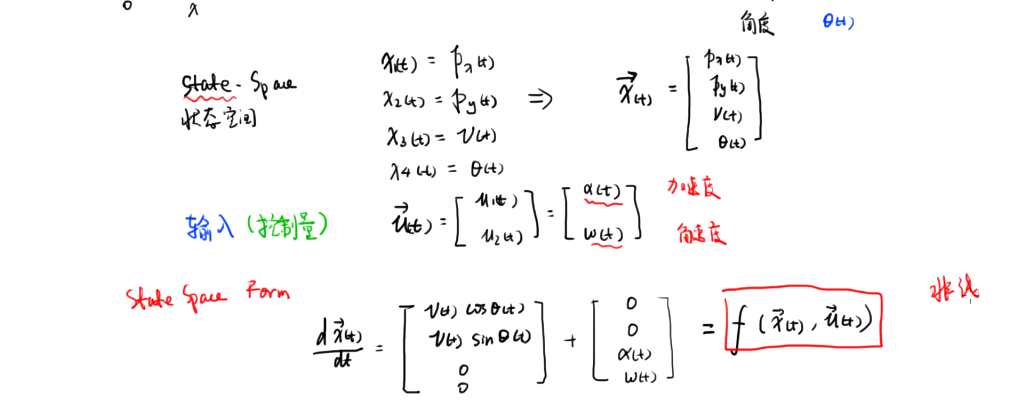 0 x
角度 θ(t)
State-Space
状态空间
x₁(t) = pₓ(t)
x₂(t) = p_y(t)
x₃(t) = v(t)
x₄(t) = θ(t)
⇒ x⃗(t) = [ pₓ(t) p_y(t) v(t) θ(t) ]
输入 (控制量) u⃗(t) = [ u₁(t) u₂(t) ] = [ α(t) w(t) ]
加速度
角速度
State Space Form
dx⃗(t)/dt = [ v(t) cosθ(t) v(t) sinθ(t) 0 0 ] + [ 0 0 α(t) w(t) ] = f (x⃗(t), u⃗(t))